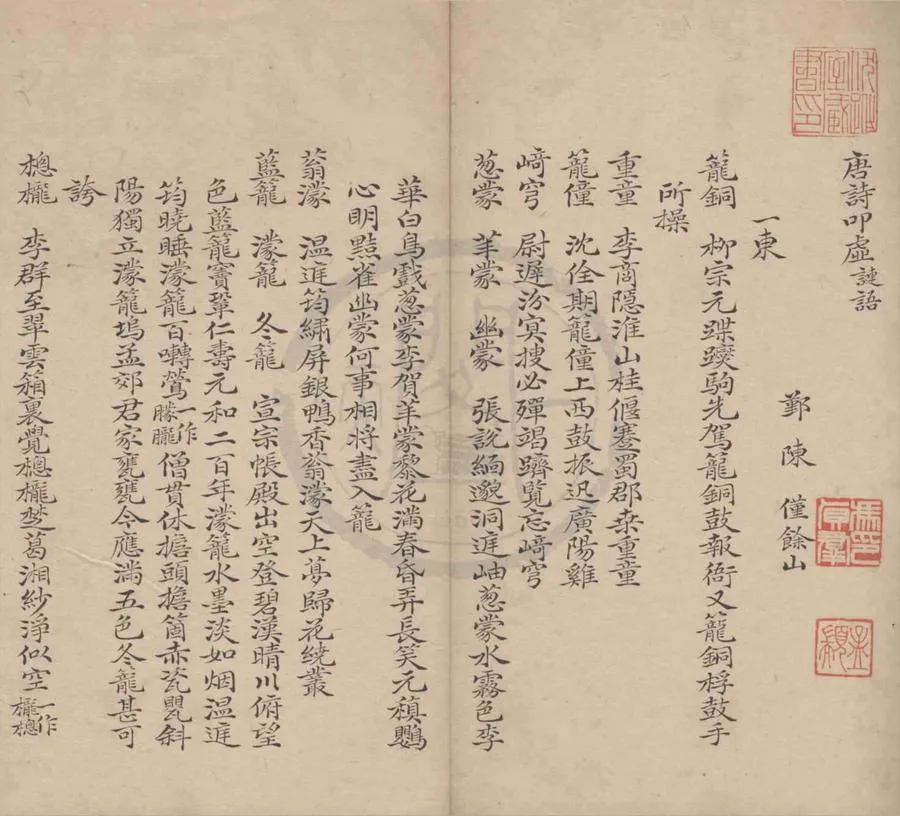 唐詩叩虛謰語
鄞陳僅餘山
一東
籠銅 柳宗元蹀躞驹先駕籠銅鼓報衙又籠銅桴鼓手
所操
重童 李商隱淮山桂偃蹇蜀郡桒重童
籠僮 沈佺期籠僮上西鼓振迅廣陽雞
﨑穹 尉遲汾冥搜必殫竭躋覧忘﨑穹
葱蒙 羊蒙 幽蒙 張説緬邈洞逰岫葱蒙水霧色李
華白鳥戲葱蒙李賀羊蒙黎花滿春昏弄長笑元稹鸚
心明黠雀幽蒙何事相將盡入籠
蓊濛 温逰筠繡屏銀鴨香蓊濛天上夢歸花繞叢
藍籠 濛籠 冬籠 宣宗帳殿出空登碧漢晴川俯望
色藍籠竇鞏仁壽元和二百年濛籠水墨淡如烟温逰
筠曉睡濛籠百囀鶯一作朦朧僧貫休擔頭擔箇赤瓷甖斜
陽獨立濛籠塢孟郊君家甕甕今應滿五色冬籠甚可
誇
樬櫳 李群玉翠雲箱裏疊樬櫳楚葛湘紗淨似空一作櫳樬